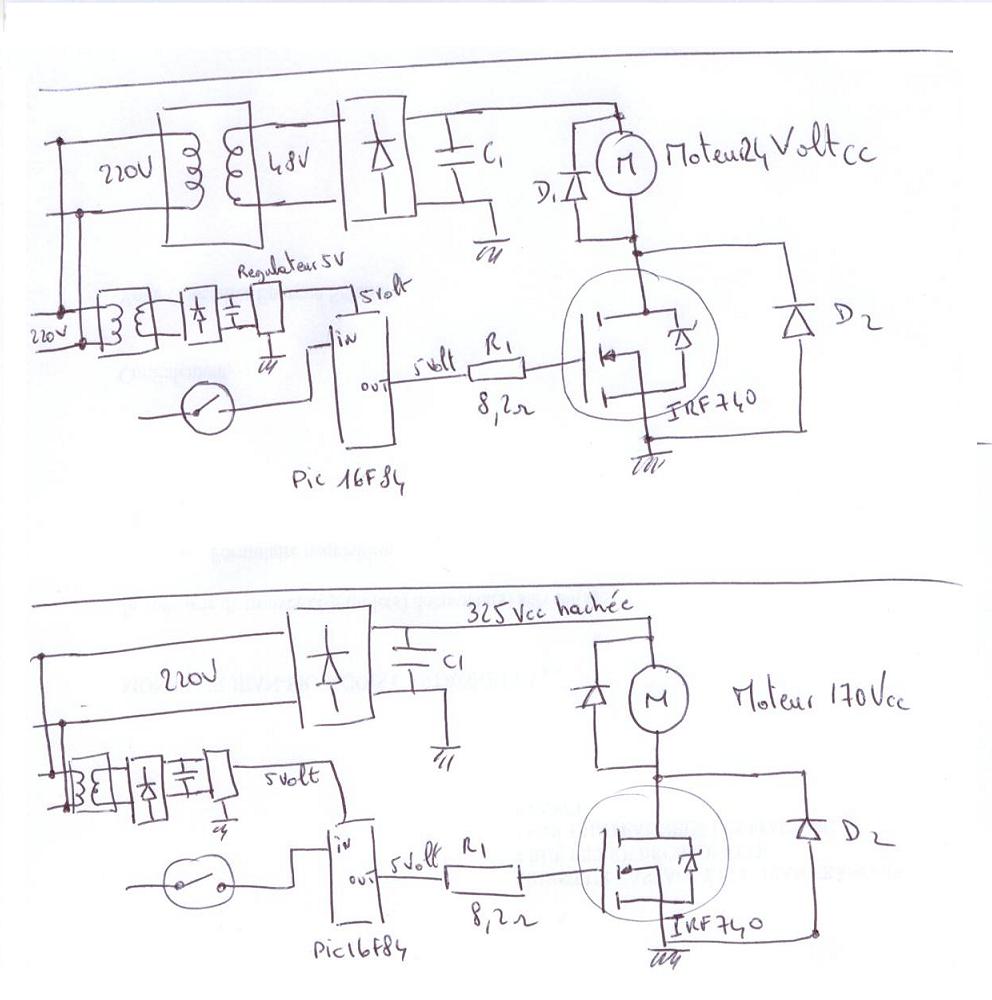 220V
48V
C1
D1
M
Moteur24 Voltcc
Regulateur 5V
5volt
220V
in
OUT
5volt
R1
8,2Ω
IRF740
D2
Pic 16F84
325 Vcc hachée
220V
C1
M
Moteur 170Vcc
5volt
in
OUT
5Volt
R1
8,2Ω
IRF740
D2
Pic16F84